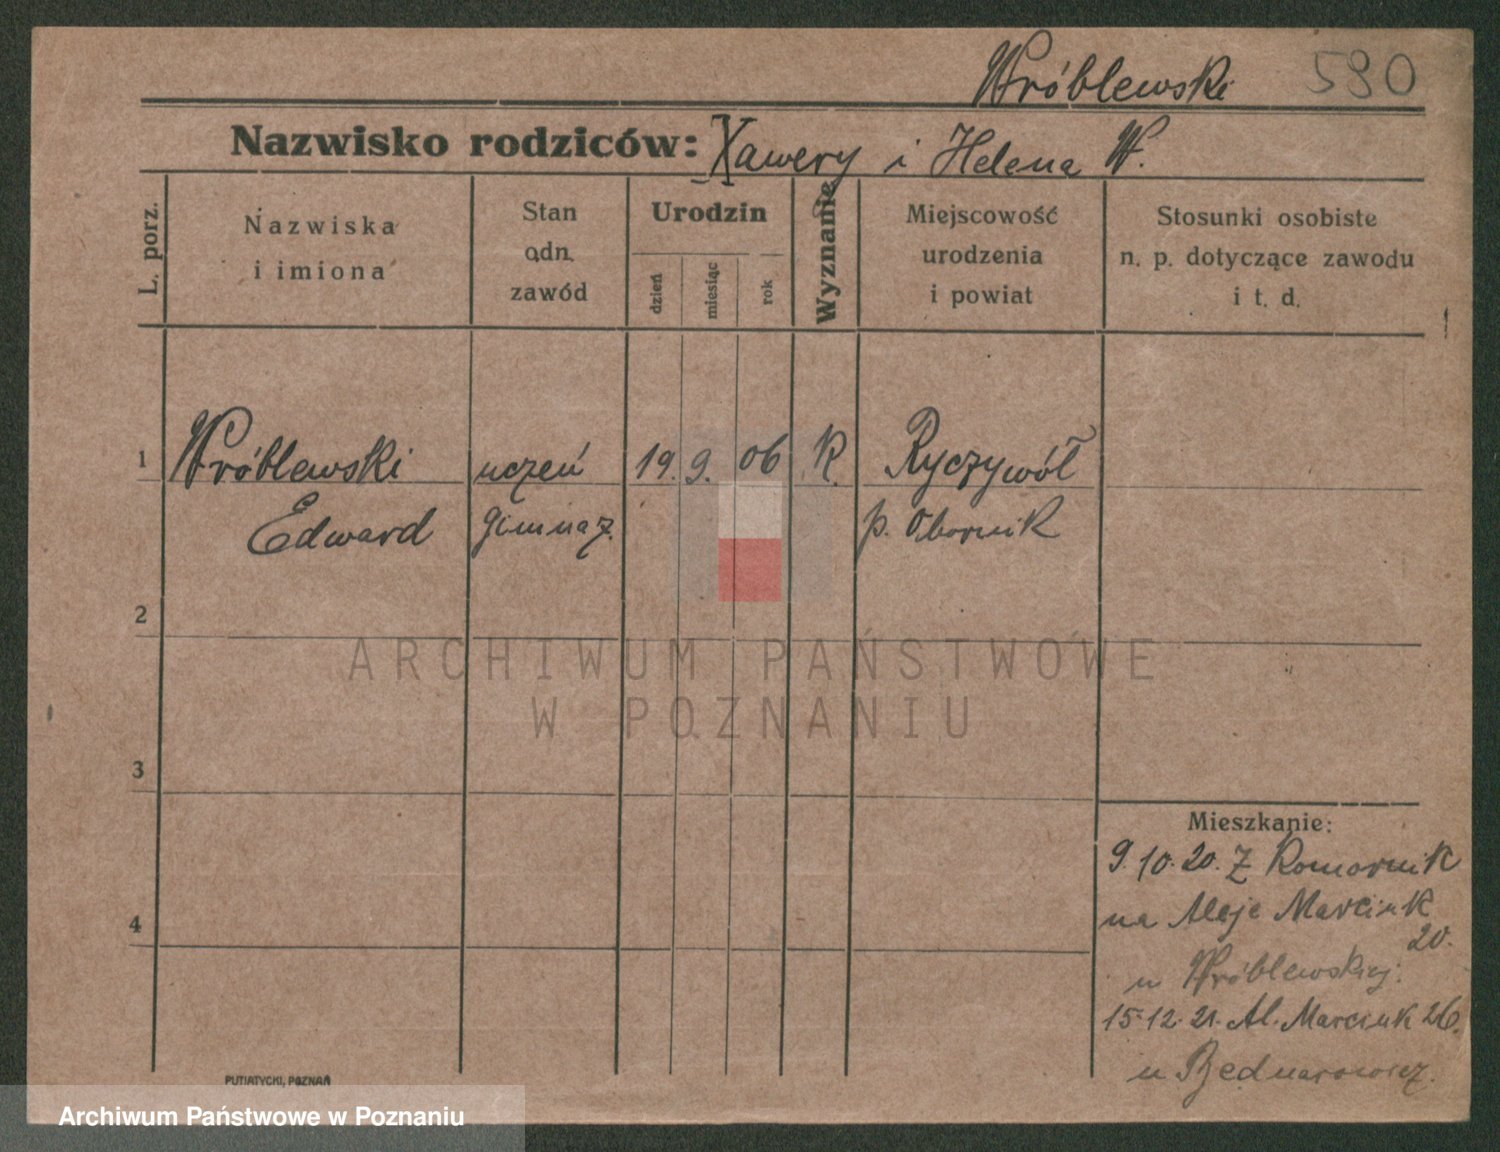 Wróblewski 590
Nazwisko rodziców: Xawery i Helena W.
L. porz.
Nazwiska
i imiona
Stan
odn.
zawód
Urodzin
dzień
miesiąc
rok
Wyznanie
Miejscowość
urodzenia
i powiat
Stosunki osobiste
n. p. dotyczące zawodu
i t. d.
1 Wróblewski uczeń 19. 9. 06 K. Ryczywół
Edward gimnaz. p. Obornik
2
3
4
Mieszkanie:
9.10.20. Z Komornik
na Aleje Marcink
20.
u Wróblewskiej.
15.12.21. Al. Marcink 26.
u Bednarowicz.
PUTIATYCKI, POZNAŃ
ARCHIWUM PAŃSTWOWE
W POZNANIU
Archiwum Państwowe w Poznaniu